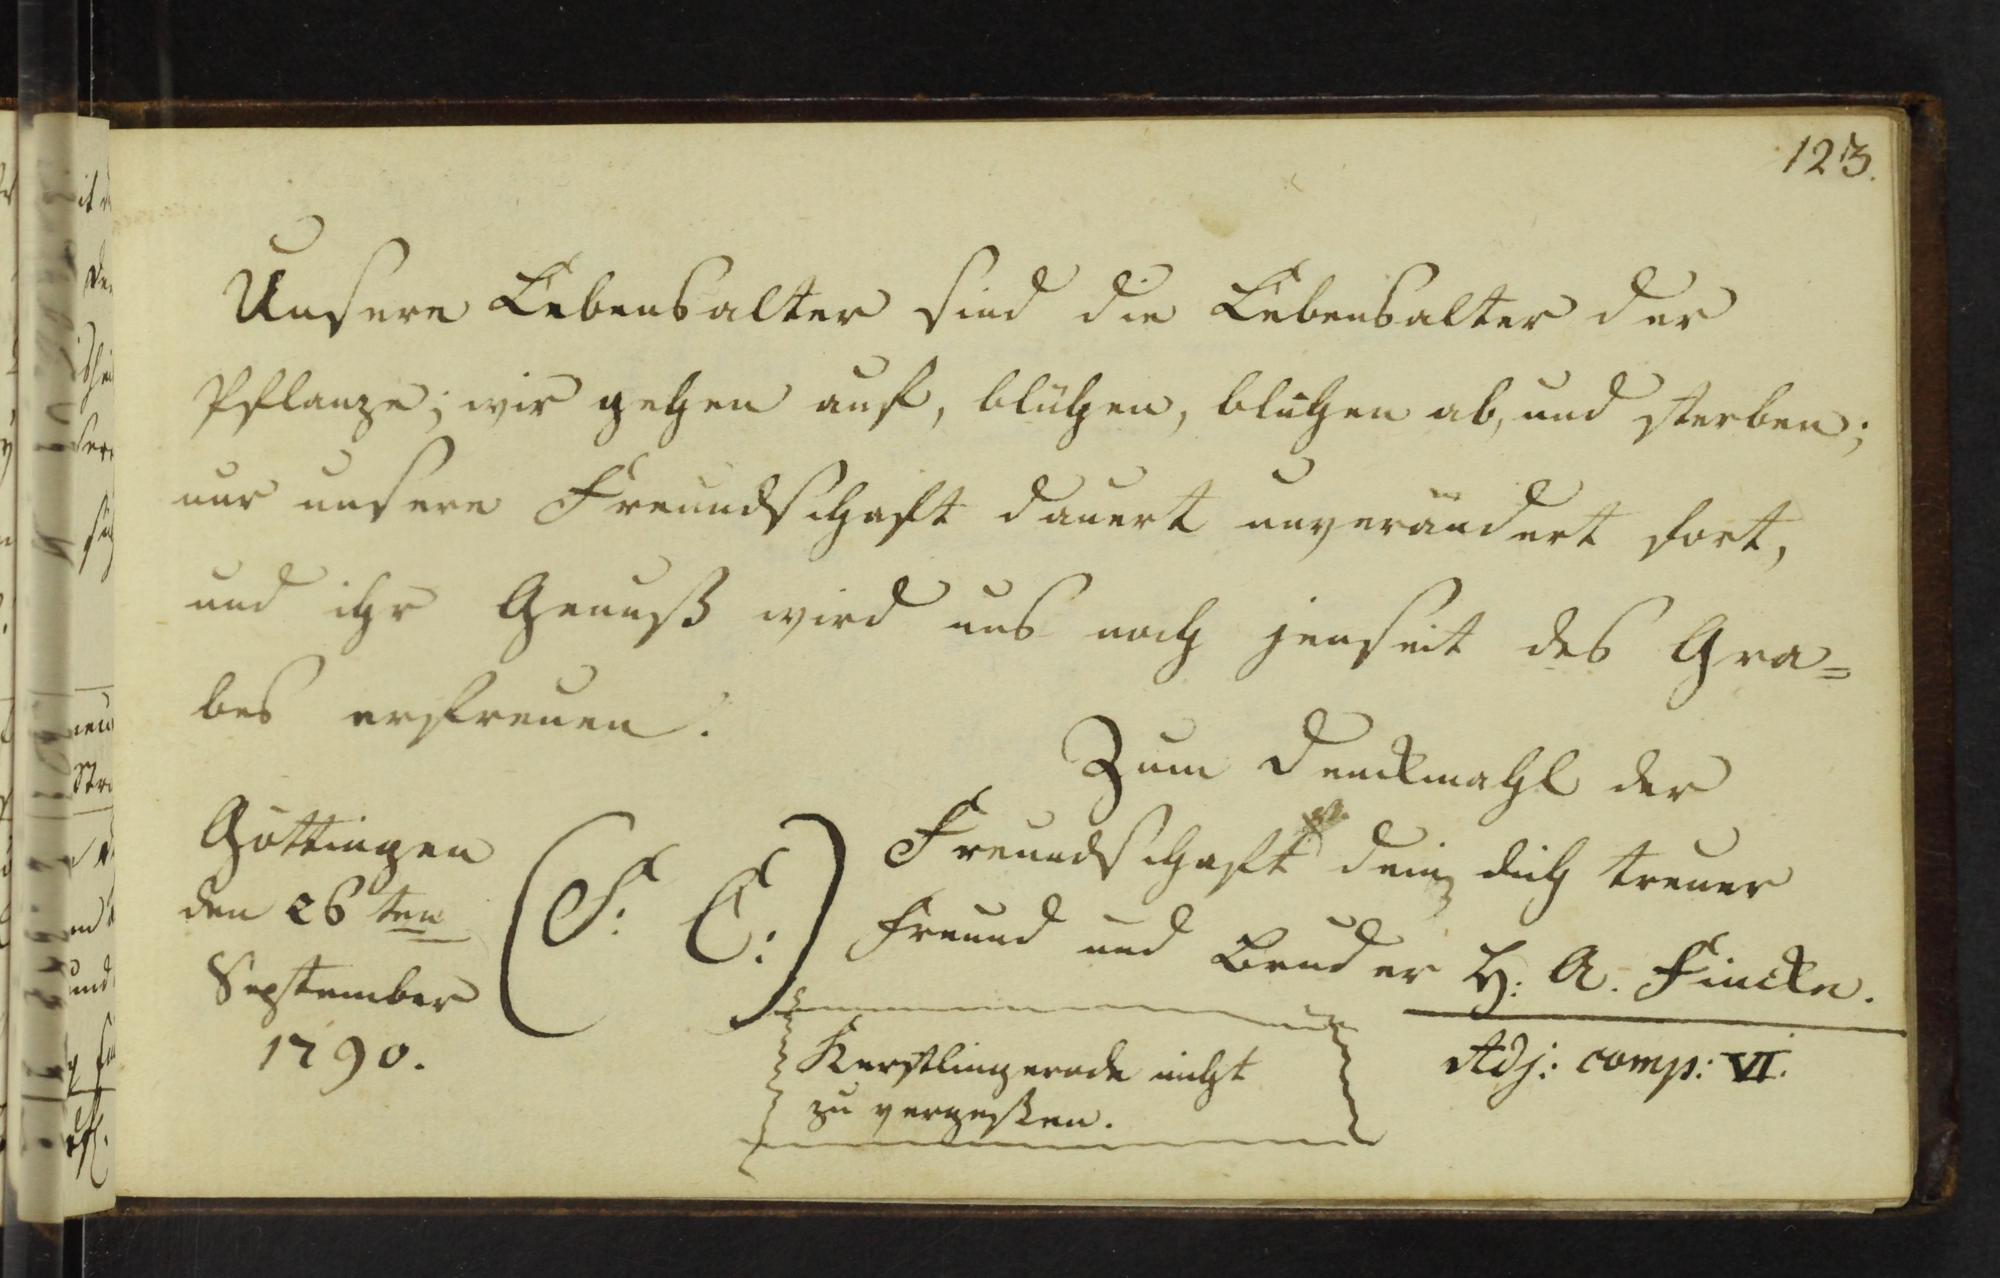 123.
Unsere Lebensalter sind die Lebensalter der
Pflanze; wir gehen auf, blühen, blühen ab, und sterben;
nur unsere Freundschaft dauert unverändert fort,
und ihr Genuß wird uns noch jenseit des Gra=
bes erfreuen.
Zum Denckmahl der
Freundschaft dein dich treuer
Freund und Bruder H: A. Fincke.
Adj: comp: VI.
Göttingen
den 26ten
September
1790.
(S: C:)
Kerstlingerode nicht
zu vergeßen.